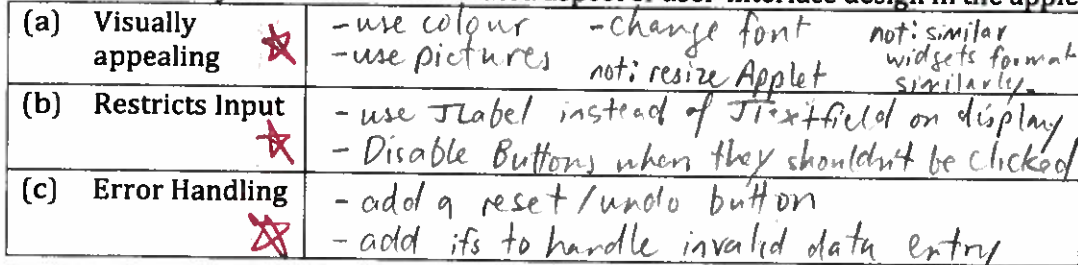 user interface design in the apple
(a) Visually appealing
- use colour - change font not: similar widgets format similarly.
- use pictures not: resize Applet
(b) Restricts Input
- use JLabel instead of JTextfield on display
- Disable Buttons when they shouldn't be clicked
(c) Error Handling
- add a reset/undo button
- add ifs to handle invalid data entry